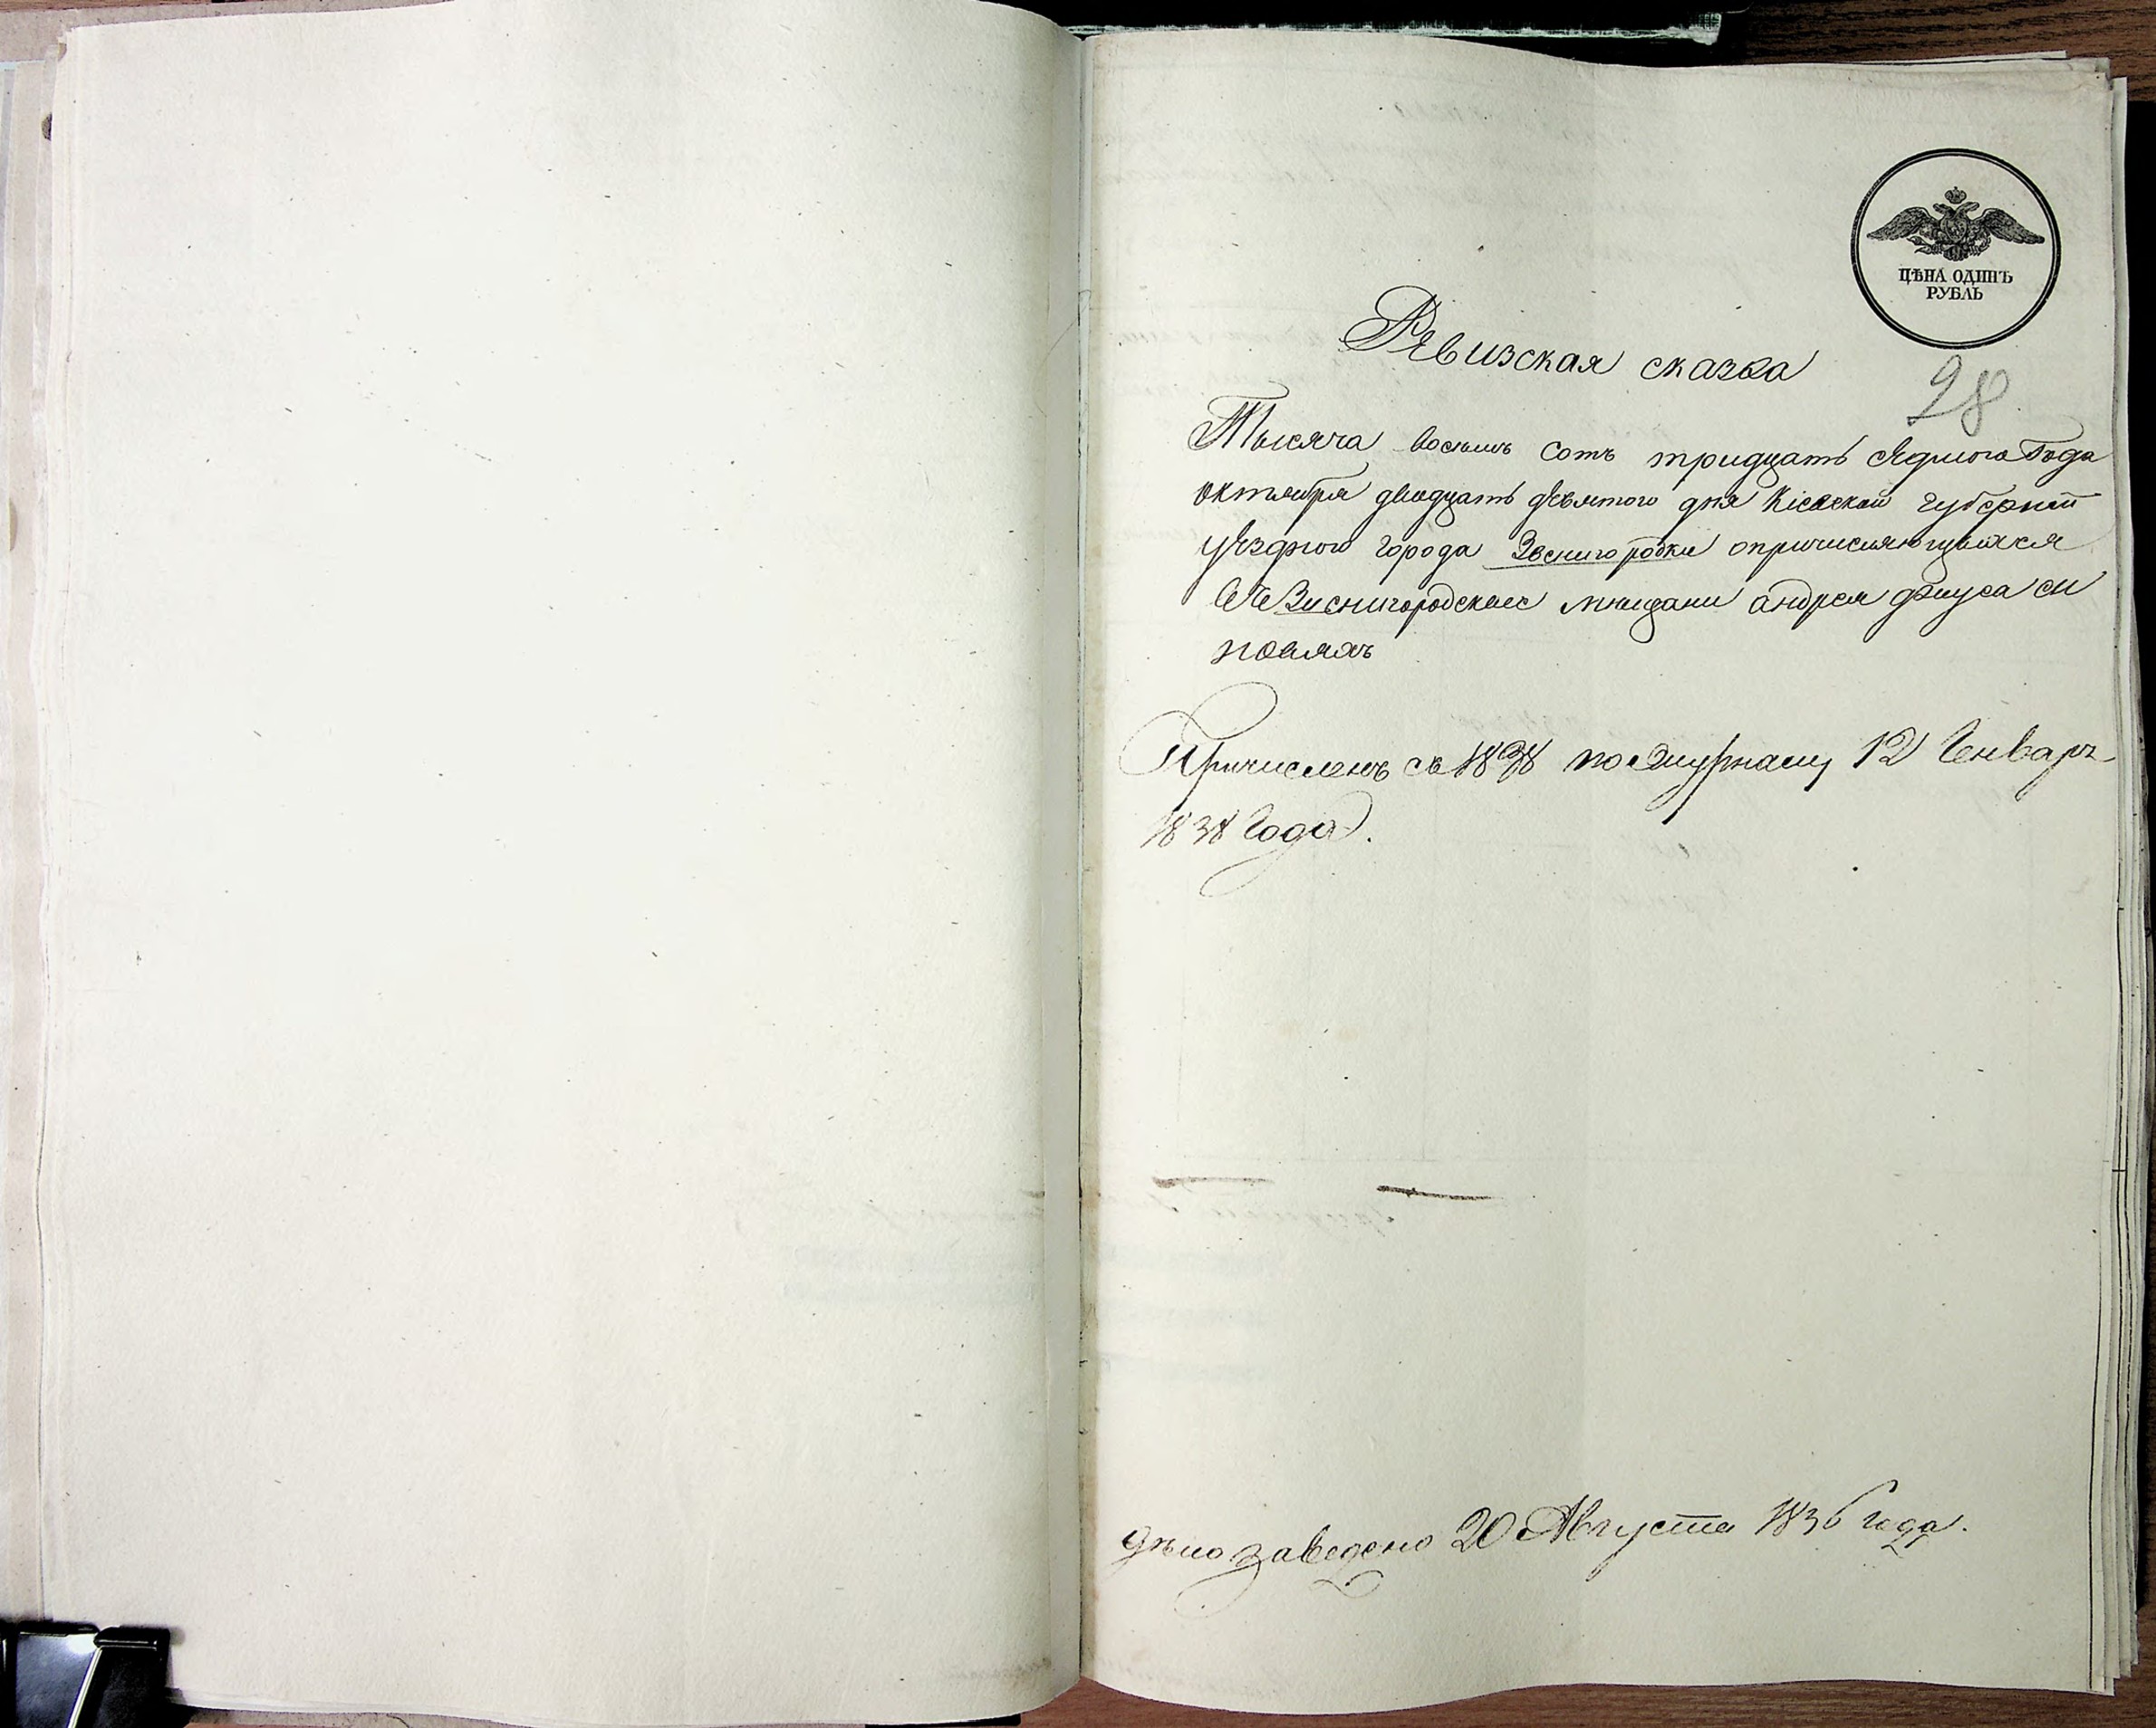 ЦѢНА ОДИНЪ
РУБЛЬ
28
Ревизская сказка
Тысяча восемь сотъ тридцать седмого Года
октября двадцать девятого дня Кіевской губерніи
уездного города Звенигородки опричисляющихся
Звенигородские мещани андрея си
номъ
Причисленъ съ 1838 по журналу 12 Генваря
1838 Года.
дѣло заведено 20 Августа 1836 года.